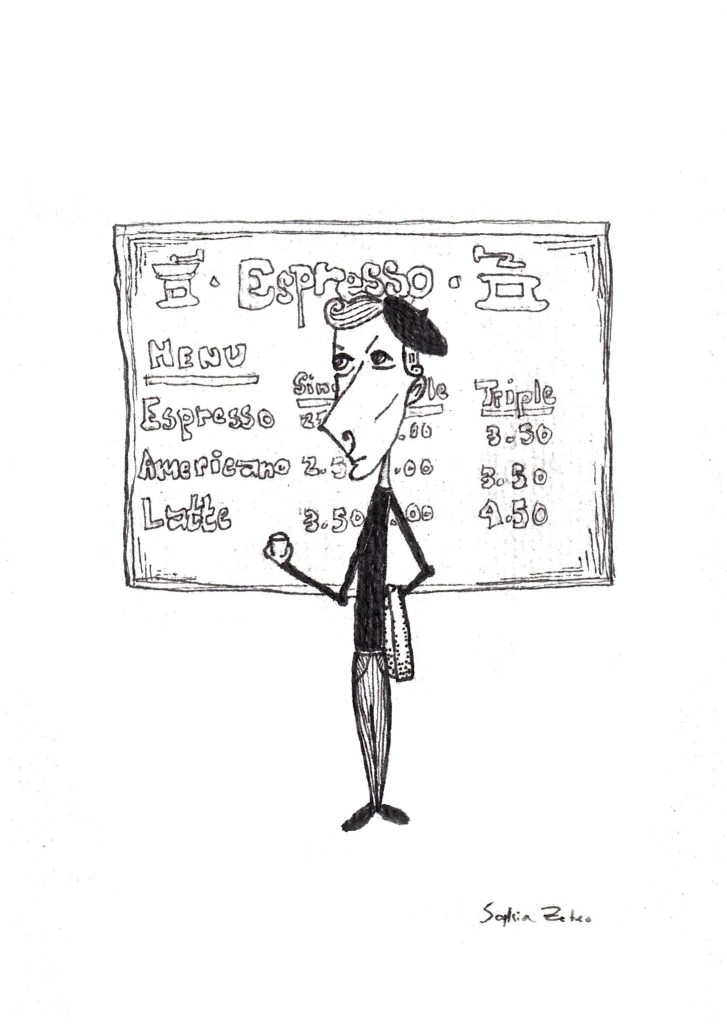 Espresso
MENU
Sin le Triple
Espresso 2 .00 3.50
Americano 2.5 .00 3.50
Latte 3.50 .00 4.50
Sophia